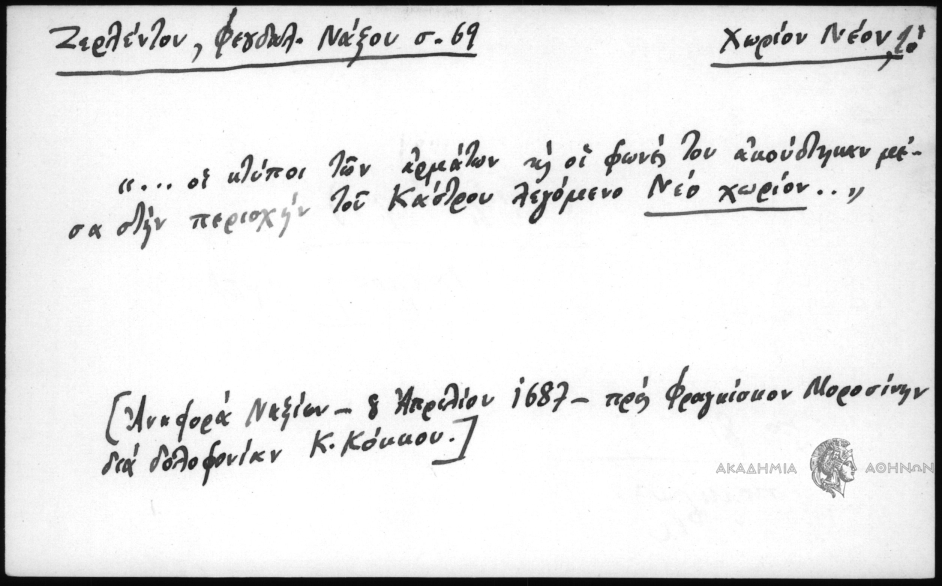 Ζερλέντου, Φεγδαλ. Νάξου σ. 69
Χωρίον Νέον, τὸ
“... οἱ κτύποι τῶν ἁρμάτων κὴ οἱ φωνές του ἀκούστηκαν μέ-
σα στὴν περιοχὴν τοῦ Κάστρου λεγόμενο Νέο χωρίον..„
[Ἀναφορά Ναξίων – 8 Ἀπριλίου 1687 – πρός Φραγκίσκον Μοροσίνην
διά δολοφονίαν Κ. Κόκκου.]
ΑΚΑΔΗΜΙΑ ΑΘΗΝΩΝ